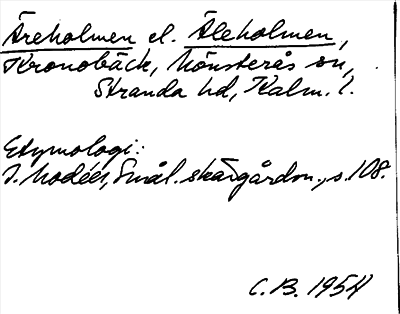 Äreholmen el. Äleholmen,
Kronobäck, Mönsterås sn,
Stranda hd, Kalm. l.
Etymologi:
I. Modéer, Smål. skärgårdsn., s. 108.
C.B. 1954